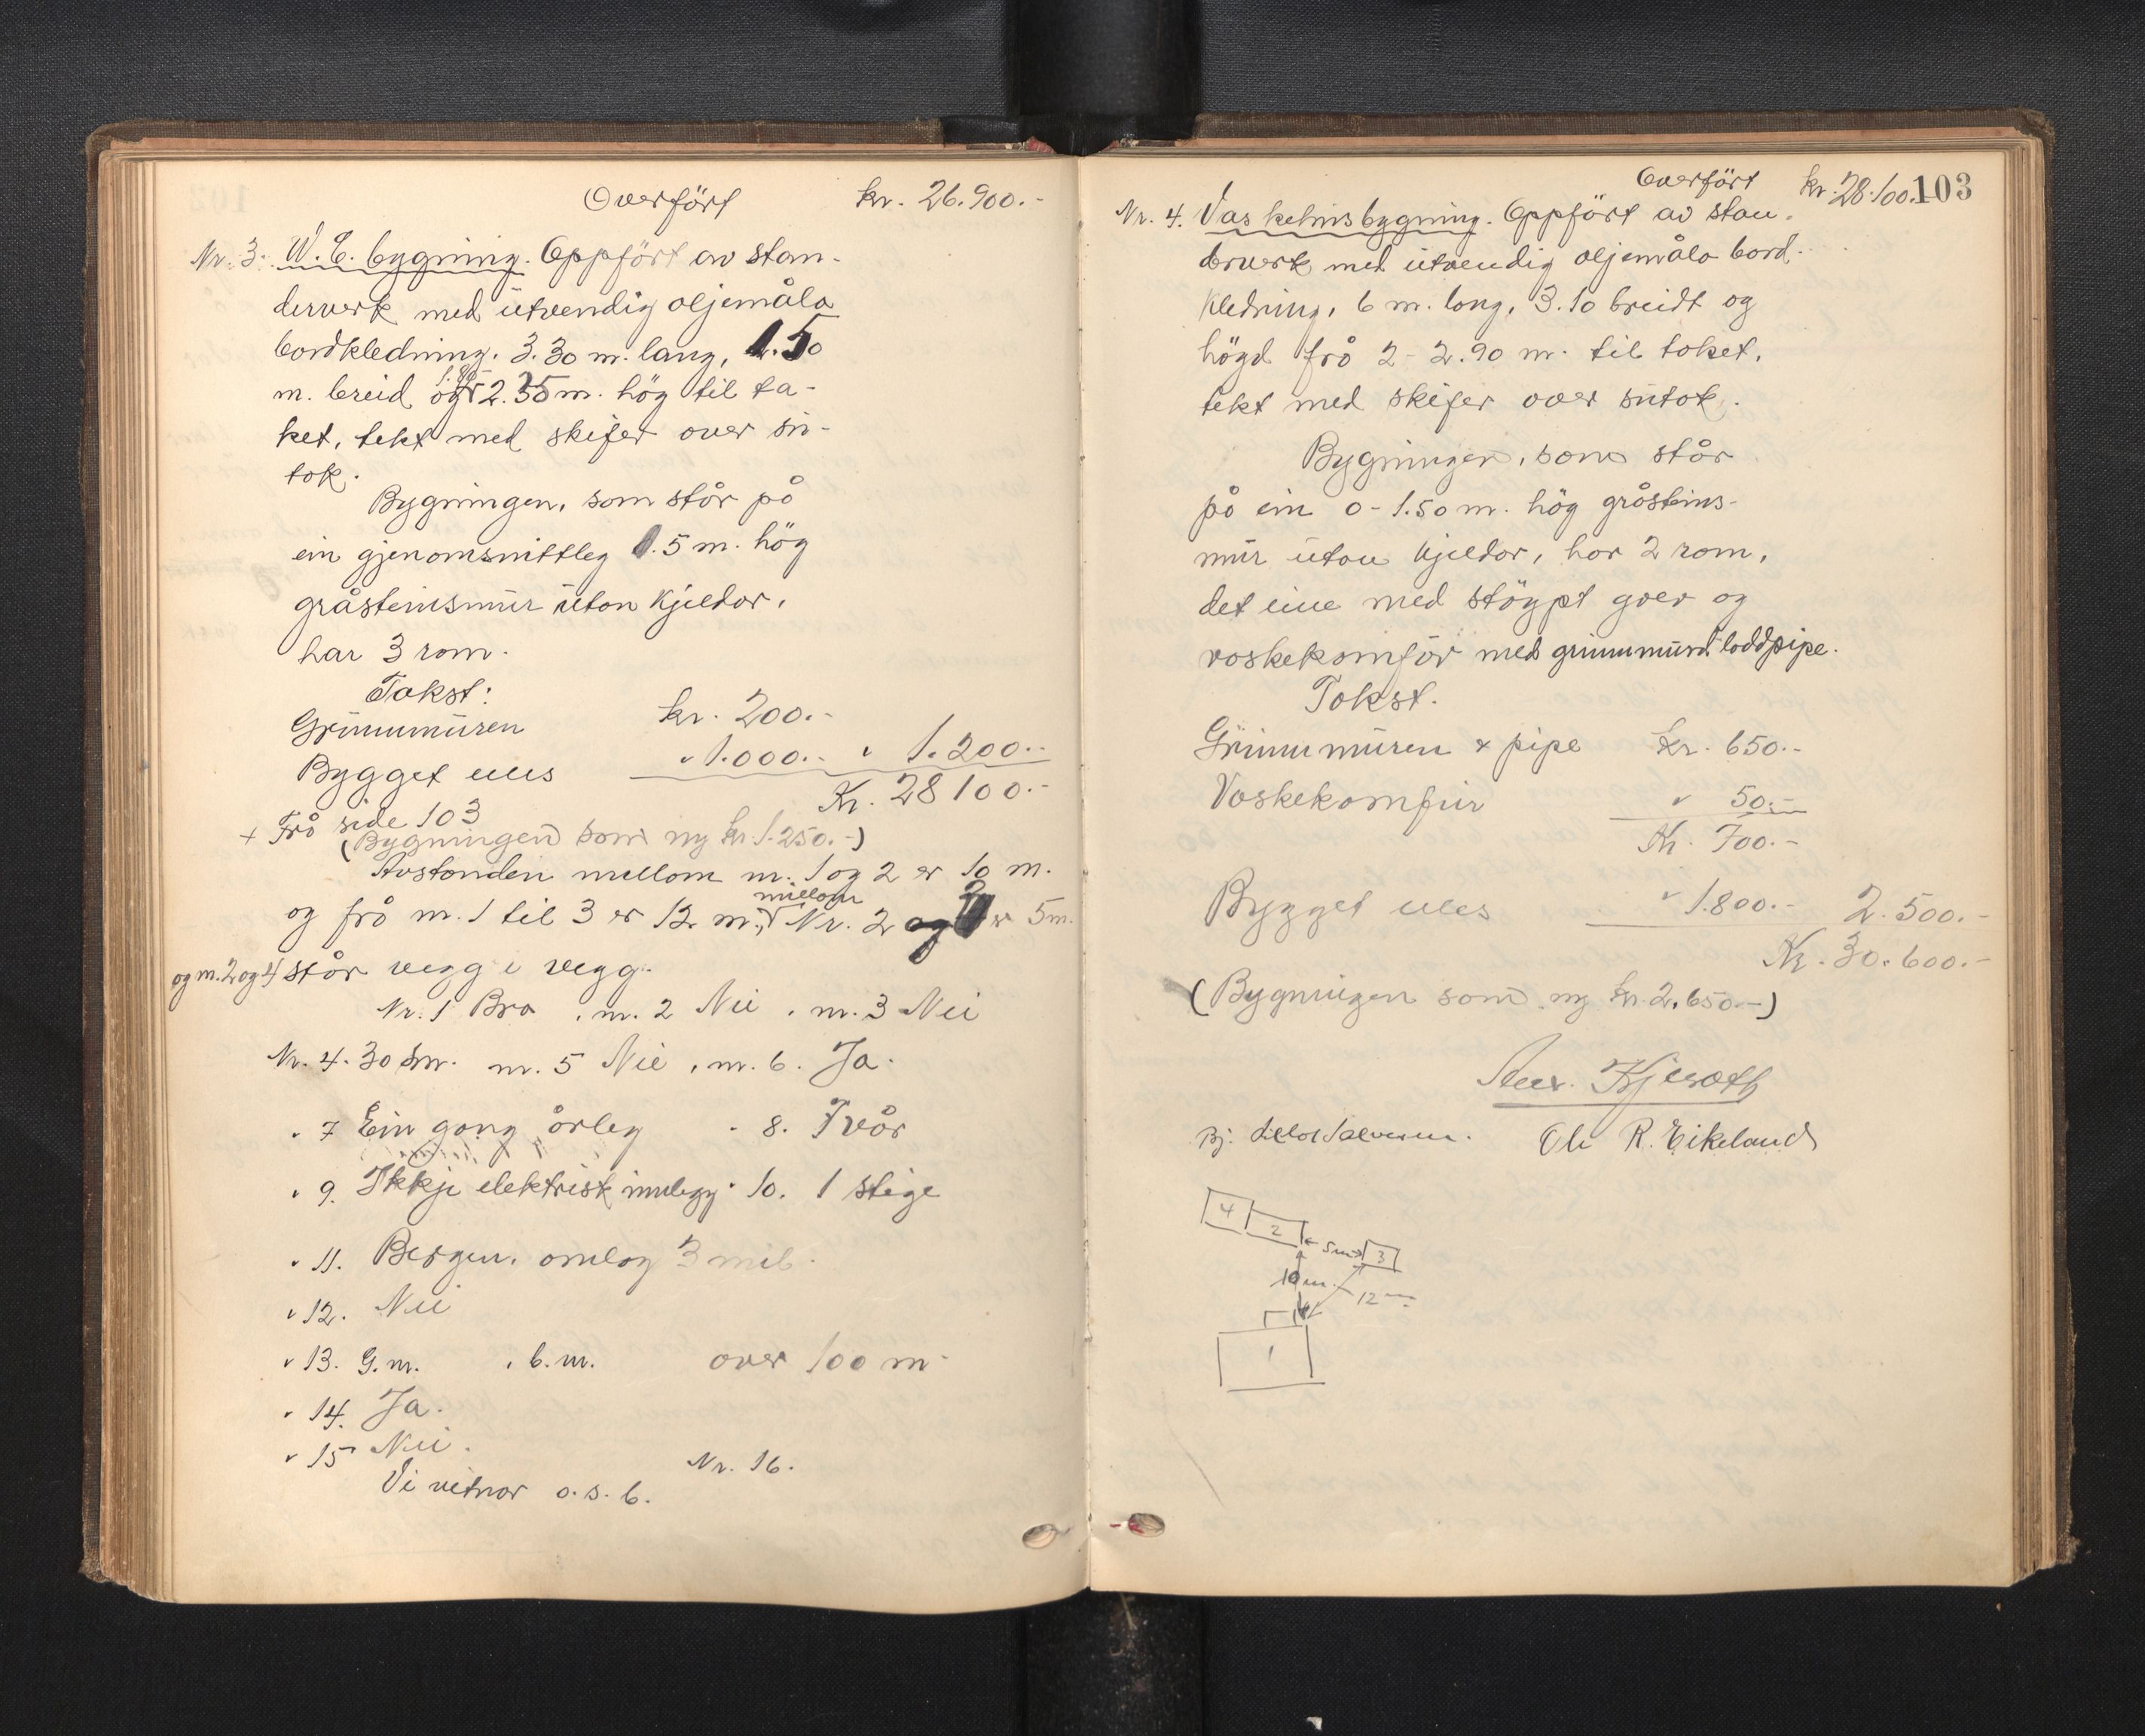 Overfört kr. 26.900.-
Nr. 3. W.C. bygning. Oppfört av stan-
derverk med utvendig oljemåla
bordkledning. 3.30 m. lang, 1.50
m. breid og 2.35 m. hög til ta-
ket, tekt med skifer over su-
tak.
Bygningen, som står på
ein gjenomsnittleg 1.5 m. hög
gråsteinsmur utan kjeldar,
har 3 rom.
Takst:
Grunnmuren kr. 200.-
Bygget elles " 1.000.- " 1.200.-
Kr. 28100.-
+ Frå side 103
(Bygningen som ny kr. 1.250.-)
Avstanden mellom nr. 1 og 2 er 10 m.
og frå nr. 1 til 3 er 12 m., mellom Nr. 2 og 3 er 5 m.
og nr. 2 og 4 står vegg i vegg.
Nr. 1 Bra, nr. 2 Nei, nr. 3 Nei
Nr. 4. 30 km. nr. 5 Nei, nr. 6. Ja.
" 7 Ein gong årleg " 8. Tvår
" 9. Ikkje elektrisk innlegg. 10. 1 stige
" 11. Bergen, omlag 3 mil.
" 12. Nei
" 13. G.m. , b.m. over 100 m
" 14. Ja.
" 15 Nei. Nr. 16.
Vi vitnar o.s.b.
Overfört kr. 28.100.- 103
Nr. 4. Vaskehusbygning. Oppfört av stan-
derverk med utvendig oljemåla bord-
kledning, 6 m. lang, 3.10 breidt og
högd frå 2 - 2.90 m. til taket,
tekt med skifer over sutak.
Bygningen, som står
på ein 0 - 1.50 m. hög gråsteins-
mur utan kjeldar, har 2 rom,
det eine med stöypt golv og
vaskekomfyr med grunnmurd loddpipe.
Takst.
Grunnmuren + pipe kr. 650.-
Vaskekomfur " 50.-
Kr. 700.-
Bygget elles " 1.800.- 2.500.-
Kr. 30.600.-
(Bygningen som ny kr. 2.650.-)
Ole R. Eikeland
4
2
← 5m → 3
10 m.
12 m
1